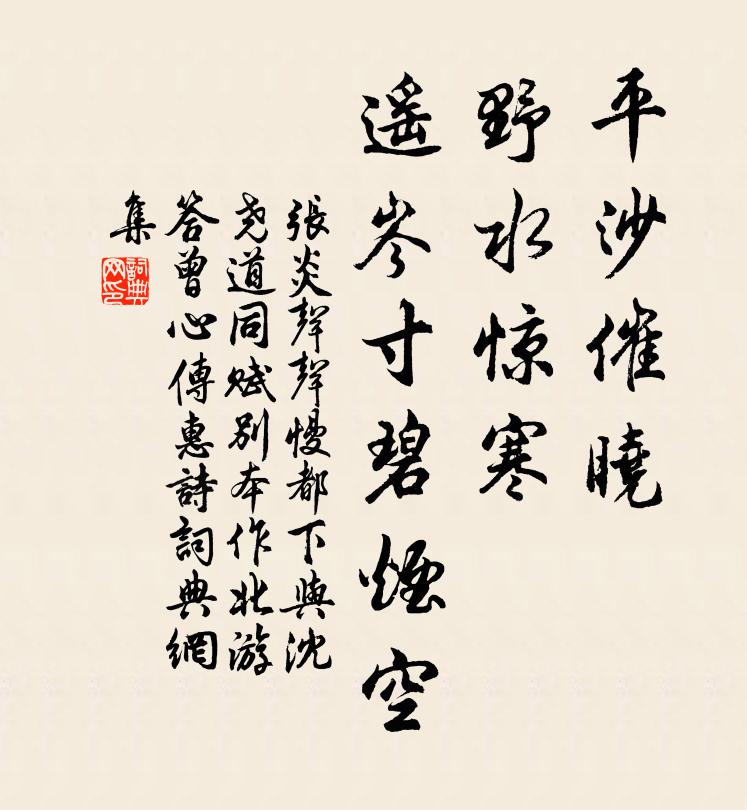 平沙催曉
野水惊寒
遥岑寸碧煙空
張炎聲聲慢都下與沈
尧道同赋别本作北游
答曾心傳惠詩詞典網
集
詞典
网印